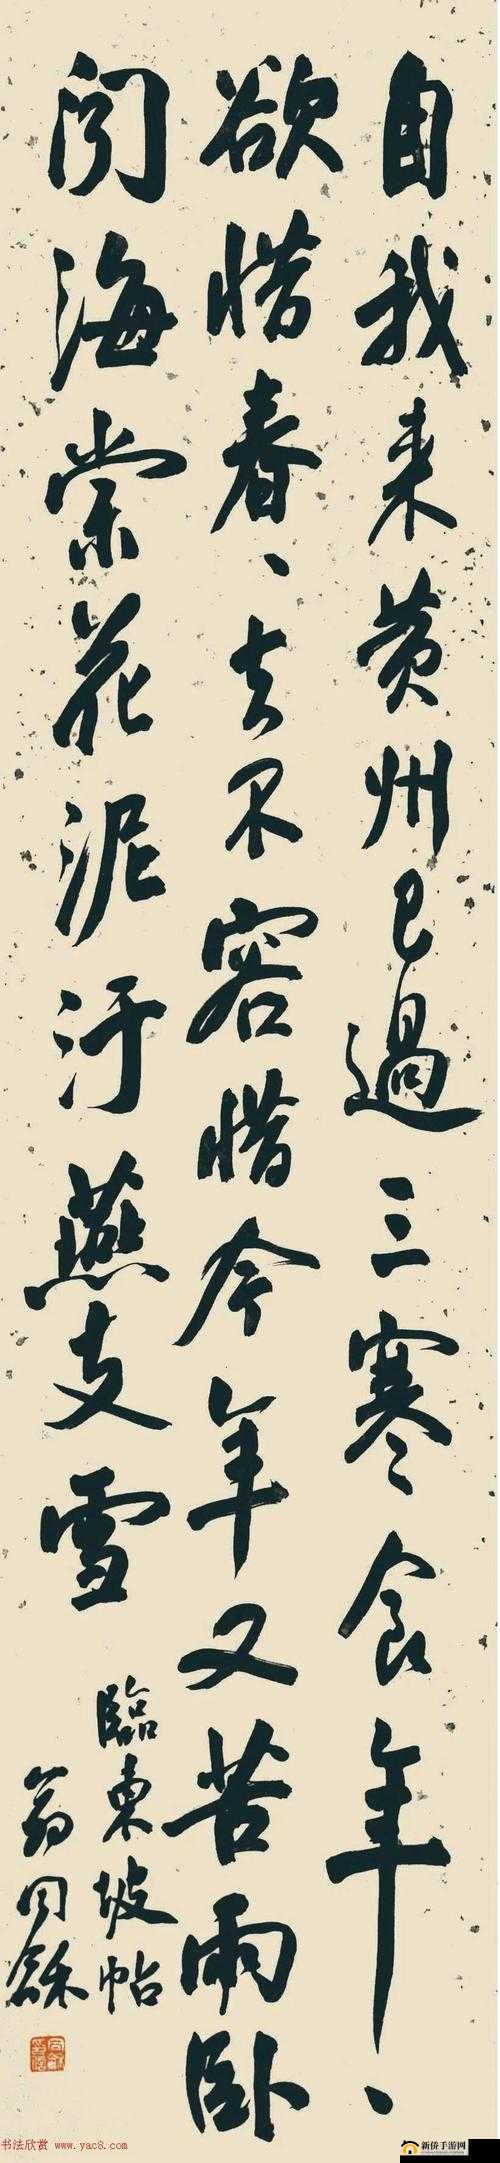 自我来黄州已過三寒食年、
欲惜春、去不容惜今年又苦雨卧
闻海棠花泥汙燕支雪
臨東坡帖
翁同龢
书法欣赏 www.yac8.com
新侨手游网